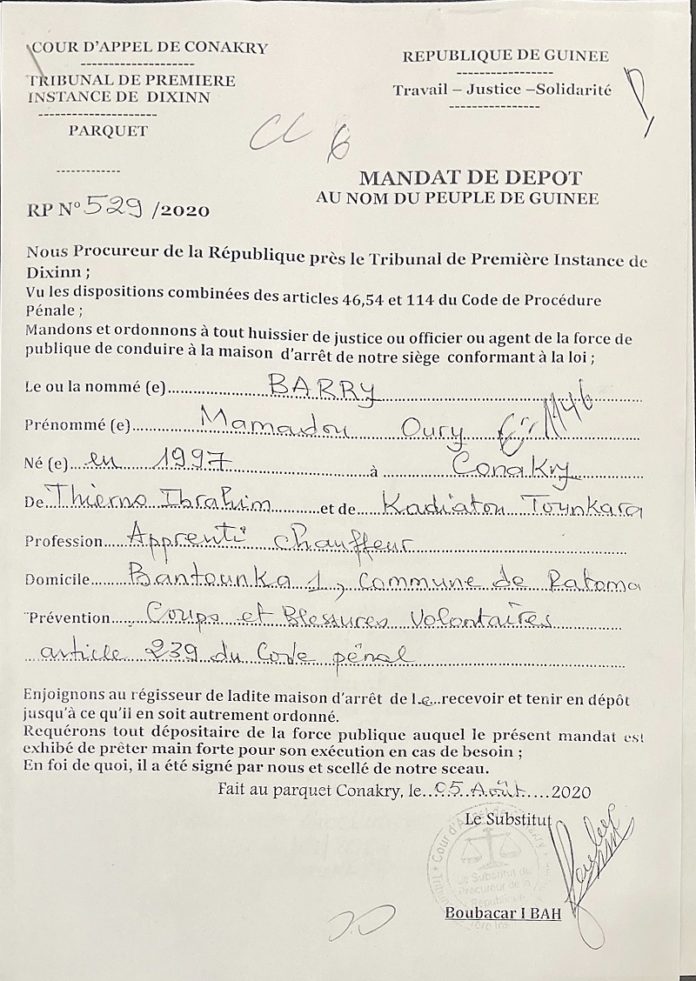 COUR D'APPEL DE CONAKRY
--------------------
TRIBUNAL DE PREMIERE
INSTANCE DE DIXINN
---------------------
PARQUET
------------
REPUBLIQUE DE GUINEE
-----------------
Travail – Justice –Solidarité
----------------
MANDAT DE DEPOT
AU NOM DU PEUPLE DE GUINEE
RP N° 529 /2020
Nous Procureur de la République près le Tribunal de Première Instance de
Dixinn ;
Vu les dispositions combinées des articles 46,54 et 114 du Code de Procédure
Pénale ;
Mandons et ordonnons à tout huissier de justice ou officier ou agent de la force de
publique de conduire à la maison d'arrêt de notre siège conformant à la loi ;
Le ou la nommé (e) BARRY
Prénommé (e) Mamadou Oury
Né (e) en 1997 à Conakry
De Thierno Ibrahim et de Kadiatou Tounkara
Profession Apprenti chauffeur
Domicile Bantounka 1, Commune de Ratoma
Prévention Coups et Blessures Volontaires
article 239 du Code pénal
Enjoignons au régisseur de ladite maison d'arrêt de l.e..recevoir et tenir en dépôt
jusqu'à ce qu'il en soit autrement ordonné.
Requérons tout dépositaire de la force publique auquel le présent mandat est
exhibé de prêter main forte pour son exécution en cas de besoin ;
En foi de quoi, il a été signé par nous et scellé de notre sceau.
Fait au parquet Conakry, le 05 Août 2020
Le Substitut
Cour d'Appel de Conakry
Le Substitut du
Procureur de la
République
Boubacar I BAH